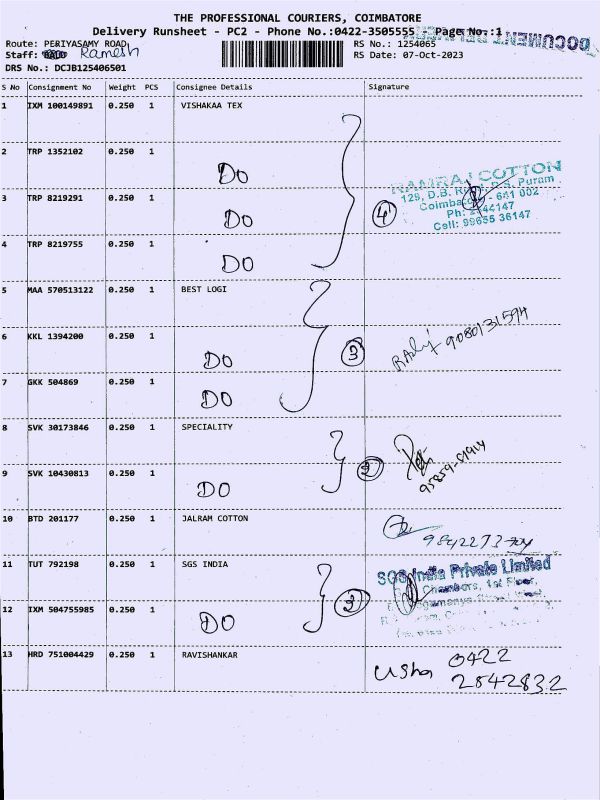 THE PROFESSIONAL COURIERS, COIMBATORE
Delivery Runsheet - PC2 - Phone No.:0422-3505555 Page No.:1
DOCUMENT
Route: PERIYASAMY ROAD RS No.: 1254065
Staff: Ramesh RS Date: 07-Oct-2023
DRS No.: DCJB125406501
S No Consignment No Weight PCS Consignee Details Signature
1 IXM 100149891 0.250 1 VISHAKAA TEX
2 TRP 1352102 0.250 1 DO
3 TRP 8219291 0.250 1 DO
4 TRP 8219755 0.250 1 DO
4
RAMRAJ COTTON
129, D.B. R.S. Puram
Coimba - 641 002
Ph: 44147
Cell: 99655 36147
5 MAA 570513122 0.250 1 BEST LOGI
6 KKL 1394200 0.250 1 DO
7 GKK 504869 0.250 1 DO
3
9080131594
8 SVK 30173846 0.250 1 SPECIALITY
9 SVK 10430813 0.250 1 DO
2
10 BTD 201177 0.250 1 JALRAM COTTON
11 TUT 792198 0.250 1 SGS INDIA
12 IXM 504755985 0.250 1 DO
2
SGS India Private Limited
Chambers, 1st Floor,
13 HRD 751004429 0.250 1 RAVISHANKAR
Usha 0422
2542832